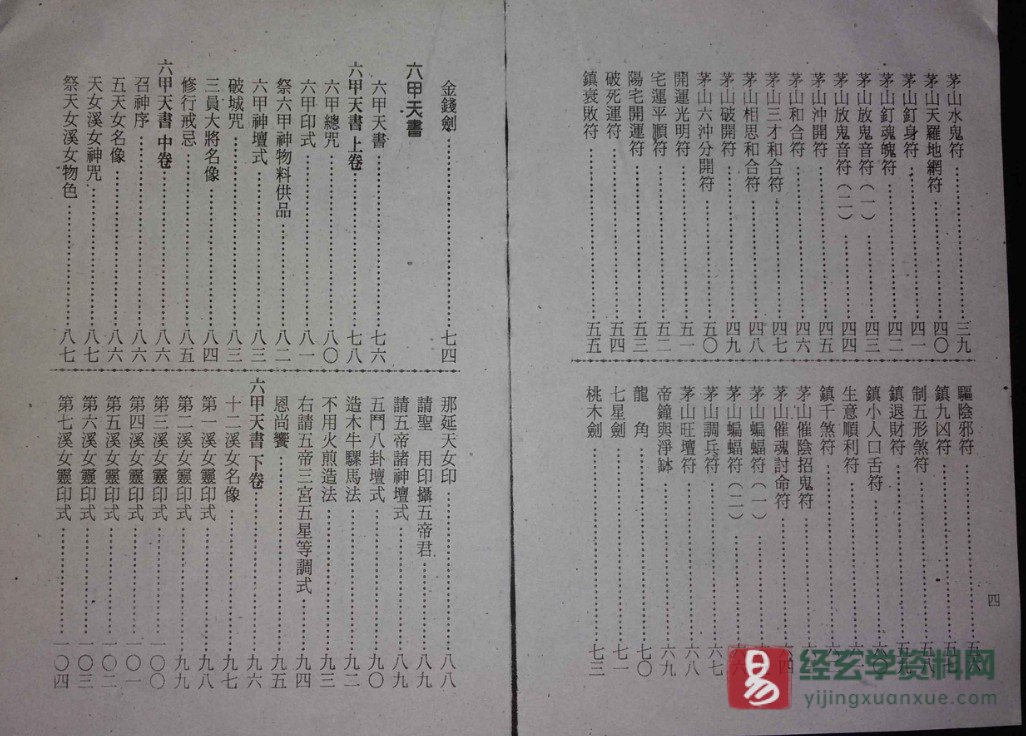 四
茅山水鬼符……三九
茅山天羅地網符……四〇
茅山釘身符……四一
茅山釘魂魄符……四二
茅山放鬼音符(一)……四三
茅山放鬼音符(二)……四四
茅山沖開符……四五
茅山和合符……四六
茅山三才和合符……四七
茅山相思和合符……四八
茅山破開符……四九
茅山六沖分開符……五〇
開運光明符……五一
宅運平順符……五二
陽宅開運符……五三
破死運符……五四
鎮衰敗符……五五
驅陰邪符……五六
鎮九凶符……五七
制五形煞符……五八
鎮退財符……五九
鎮小人口舌符……六〇
生意順利符……六
鎮千煞符……六
茅山催陰招鬼符……六
茅山催魂討命符……六四
茅山蝙蝠符(一)……六
茅山蝙蝠符(二)……六六
茅山調兵符……六七
茅山旺壇符……六八
帝鐘與淨缽……六九
龍 角……七〇
七星劍……七一
桃木劍……七三
金錢劍……七四
六甲天書
六甲天書……七六
六甲天書 上卷……七八
六甲總咒……八〇
六甲印式……八一
祭六甲神物料供品……八二
六甲神壇式……八三
破城咒……八三
三員大將名像……八四
修行戒忌……八五
六甲天書 中卷……八六
召神序……八六
五天女名像……八六
天女溪女神咒……八七
祭天女溪女物色……八七
那延天女印……八八
請聖 用印攝五帝君……八九
請五帝諸神壇式……八九
五鬥八卦壇式……九〇
造木牛騾馬法……九二
不用火煎造法……九三
右請五帝三宮五星等調式……九四
恩尚饗……九五
六甲天書 下卷……九六
十二溪女名像……九七
第一溪女靈印式……九八
第二溪女靈印式……九九
第三溪女靈印式……一〇〇
第四溪女靈印式……一〇一
第五溪女靈印式……一〇二
第六溪女靈印式……一〇三
第七溪女靈印式……一〇四
易
经玄学资料网
yijingxuanxue.com